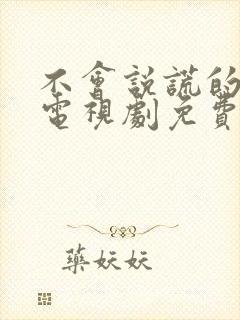 不會說謊的
電視劇免費
藥妖妖